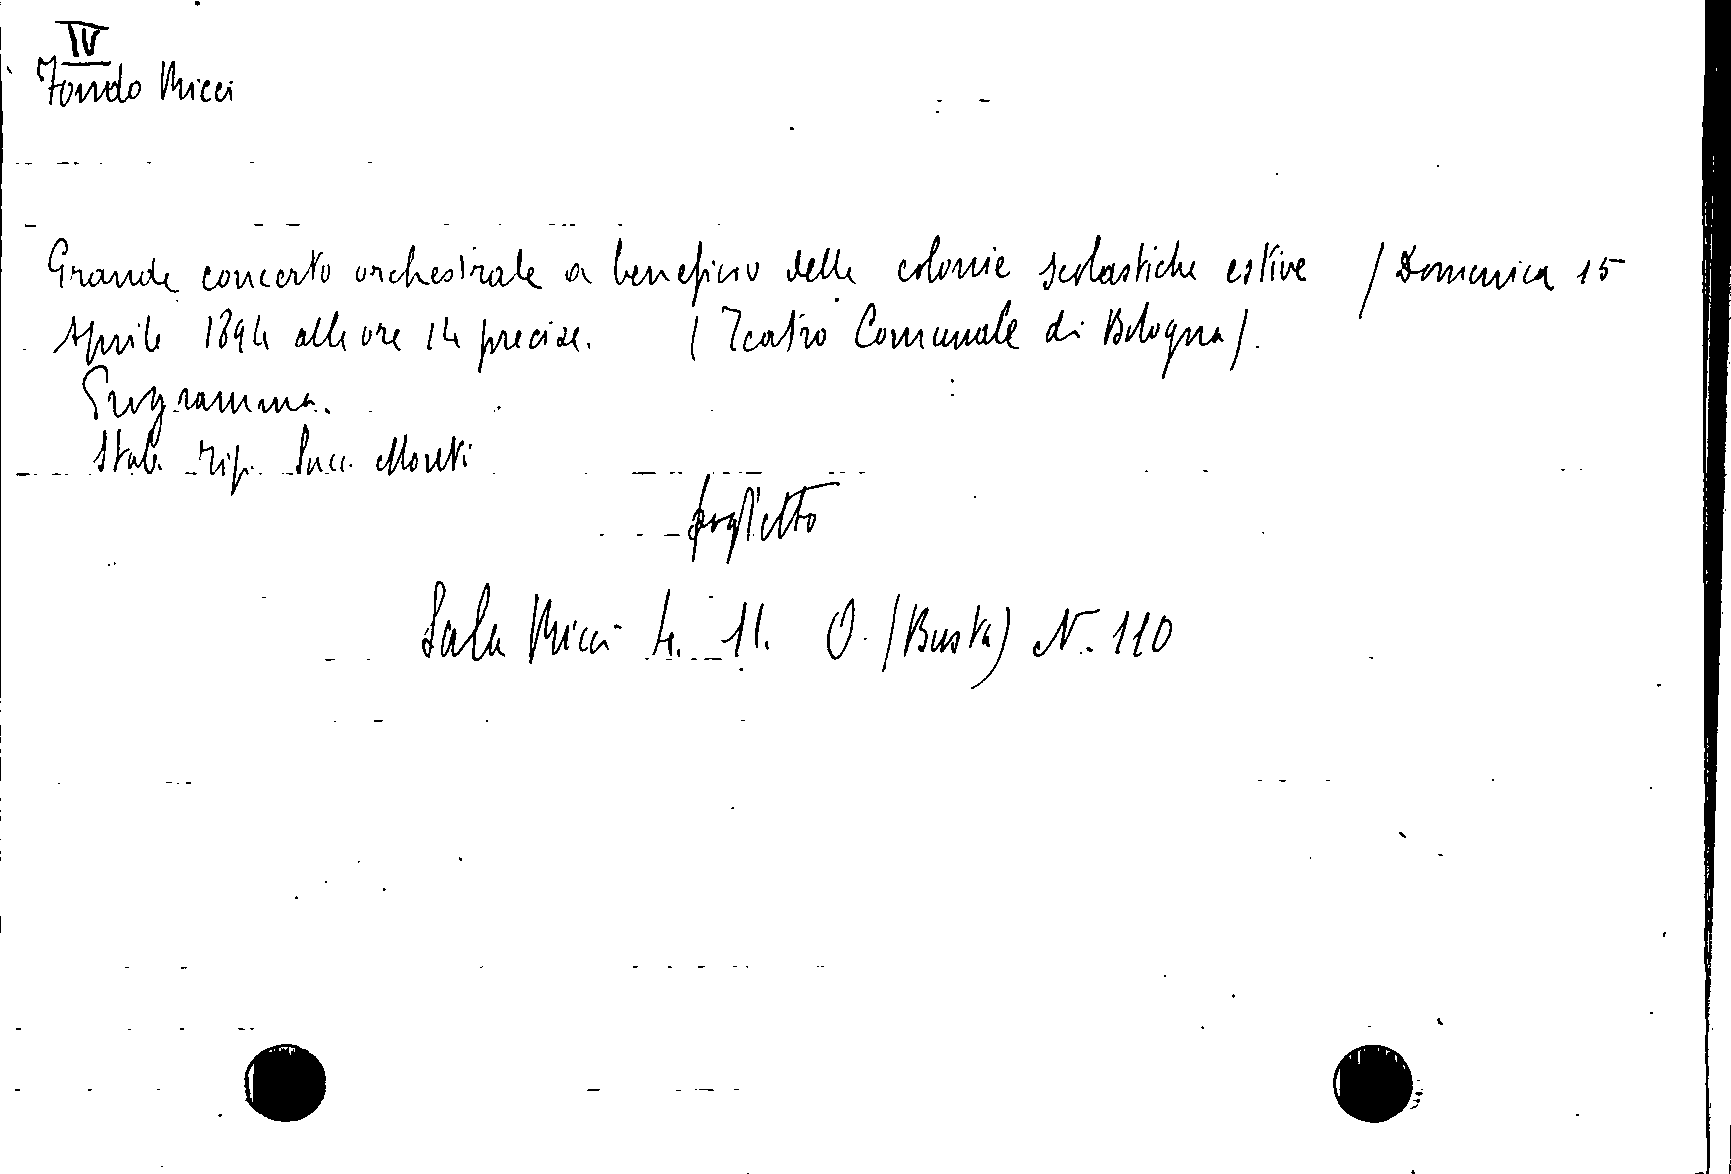 IV
Fondo Ricci
Grande concerto orchestrale a beneficio delle colonie scolastiche estive / Domenica 15
Aprile 1894 alle ore 14 precise. (Teatro Comunale di Bologna).
Programma.
Stab. Tip. Succ. Monti
foglietto
Sala Ricci 4. 11. O. (Busta) N. 110